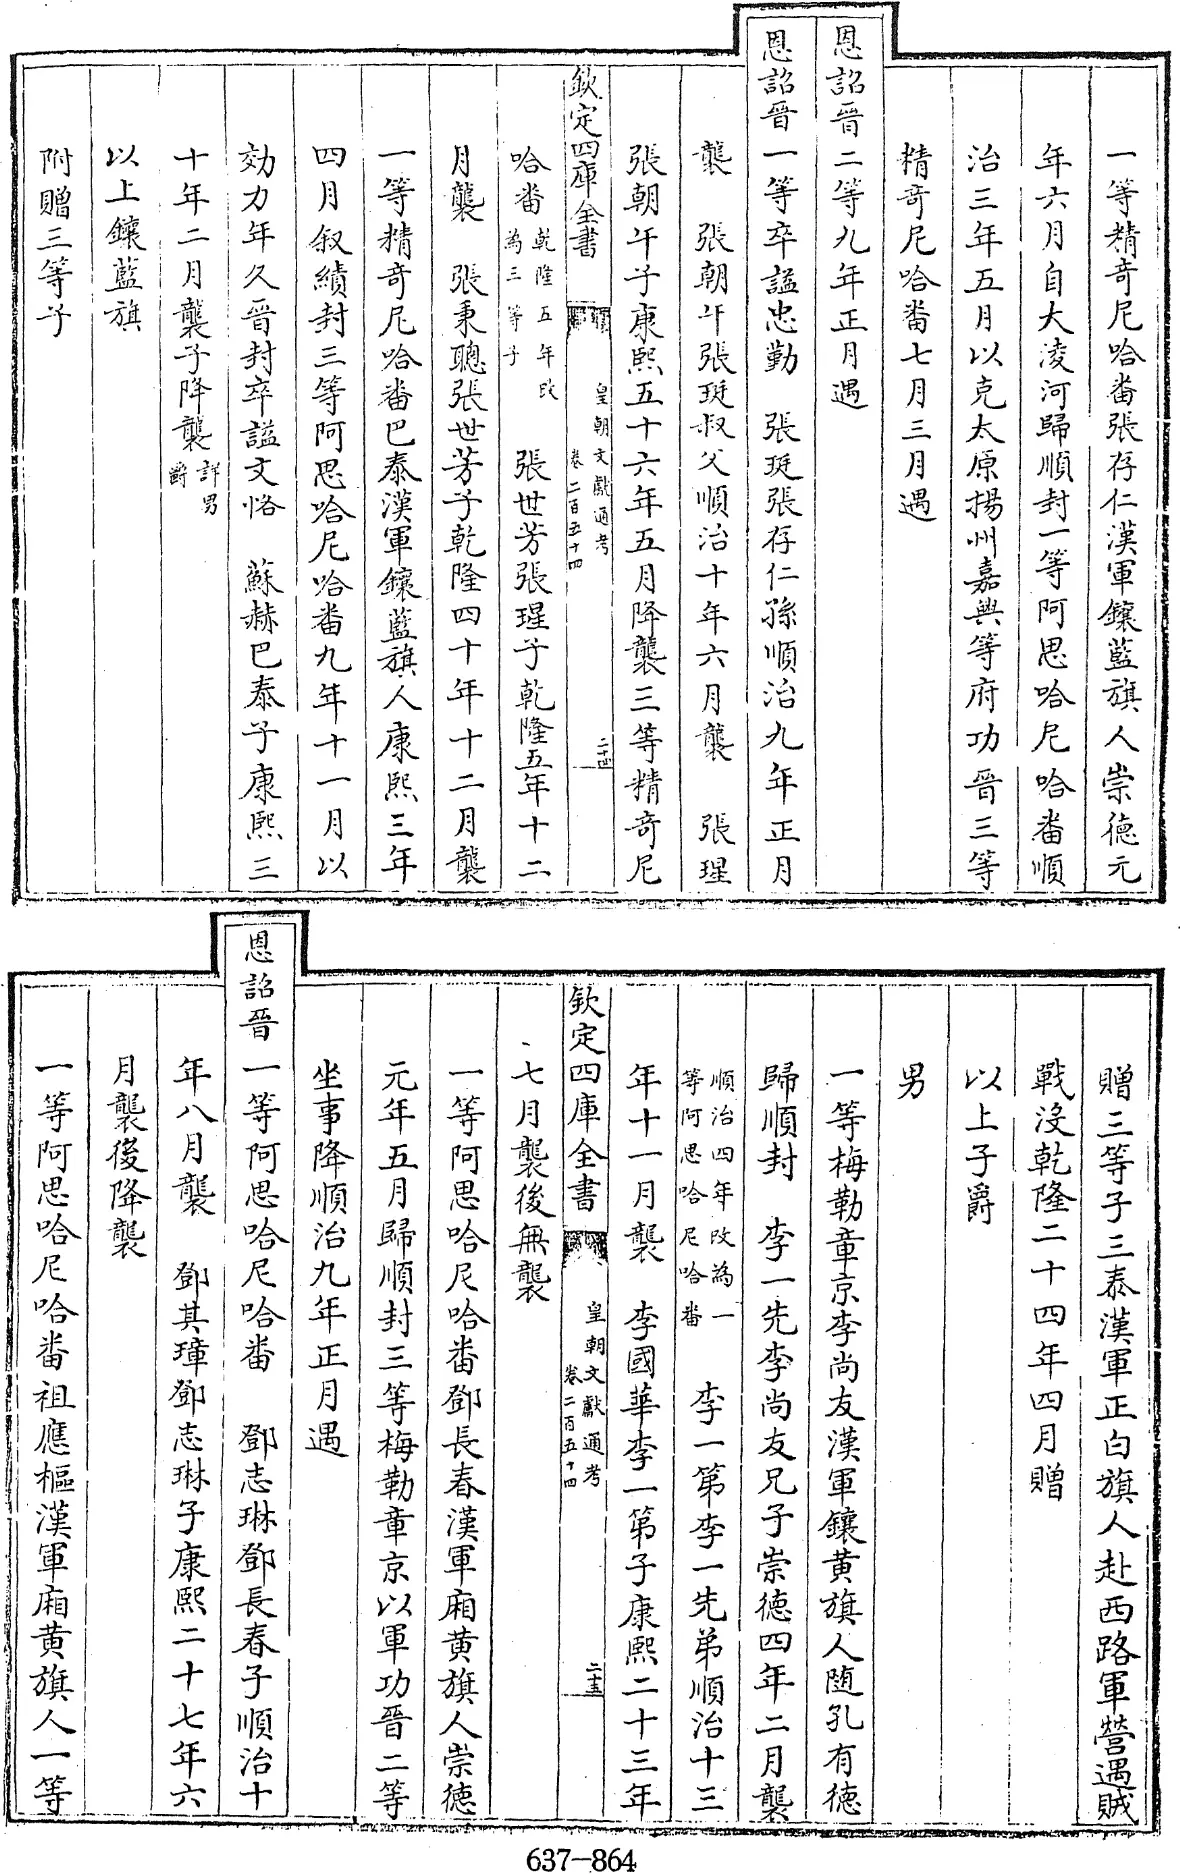 一等精奇尼哈番張存仁漢軍鑲藍旗人崇德元
年六月自大淩河歸順封一等阿思哈尼哈番順
治三年五月以克太原揚州嘉興等府功晉三等
精奇尼哈番七月三月遇
恩詔晉二等九年正月遇
恩詔晉一等卒謚忠勤 張珽張存仁孫順治九年正月
襲 張朝午張珽叔父順治十年六月襲 張珵
張朝午子康熙五十六年五月降襲三等精奇尼
欽定四庫全書
皇朝文獻通考
卷二百五十四
二十四
哈番
乾隆五年改
為三等子
張世芳張珵子乾隆五年十二
月襲 張秉聰張世芳子乾隆四十年十二月襲
一等精奇尼哈番巴泰漢軍鑲藍旗人康熙三年
四月叙績封三等阿思哈尼哈番九年十一月以
効力年久晉封卒謚文恪 蘇赫巴泰子康熙三
十年二月襲子降襲
詳男
爵
以上鑲藍旗
附贈三等子
贈三等子三泰漢軍正白旗人赴西路軍營遇賊
戰沒乾隆二十四年四月贈
以上子爵
男
一等梅勒章京李尚友漢軍鑲黄旗人随孔有德
歸順封 李一先李尚友兄子崇德四年二月襲
順治四年改為一
等阿思哈尼哈番
李一第李一先弟順治十三
年十一月襲 李國華李一第子康熙二十三年
欽定四庫全書
皇朝文獻通考
卷二百五十四
二十五
七月襲後無襲
一等阿思哈尼哈番鄧長春漢軍廂黄旗人崇德
元年五月歸順封三等梅勒章京以軍功晉二等
坐事降順治九年正月遇
恩詔晉一等阿思哈尼哈番 鄧志琳鄧長春子順治十
年八月襲 鄧其璋鄧志琳子康熙二十七年六
月襲後降襲
一等阿思哈尼哈番祖應樞漢軍廂黄旗人一等
637-864